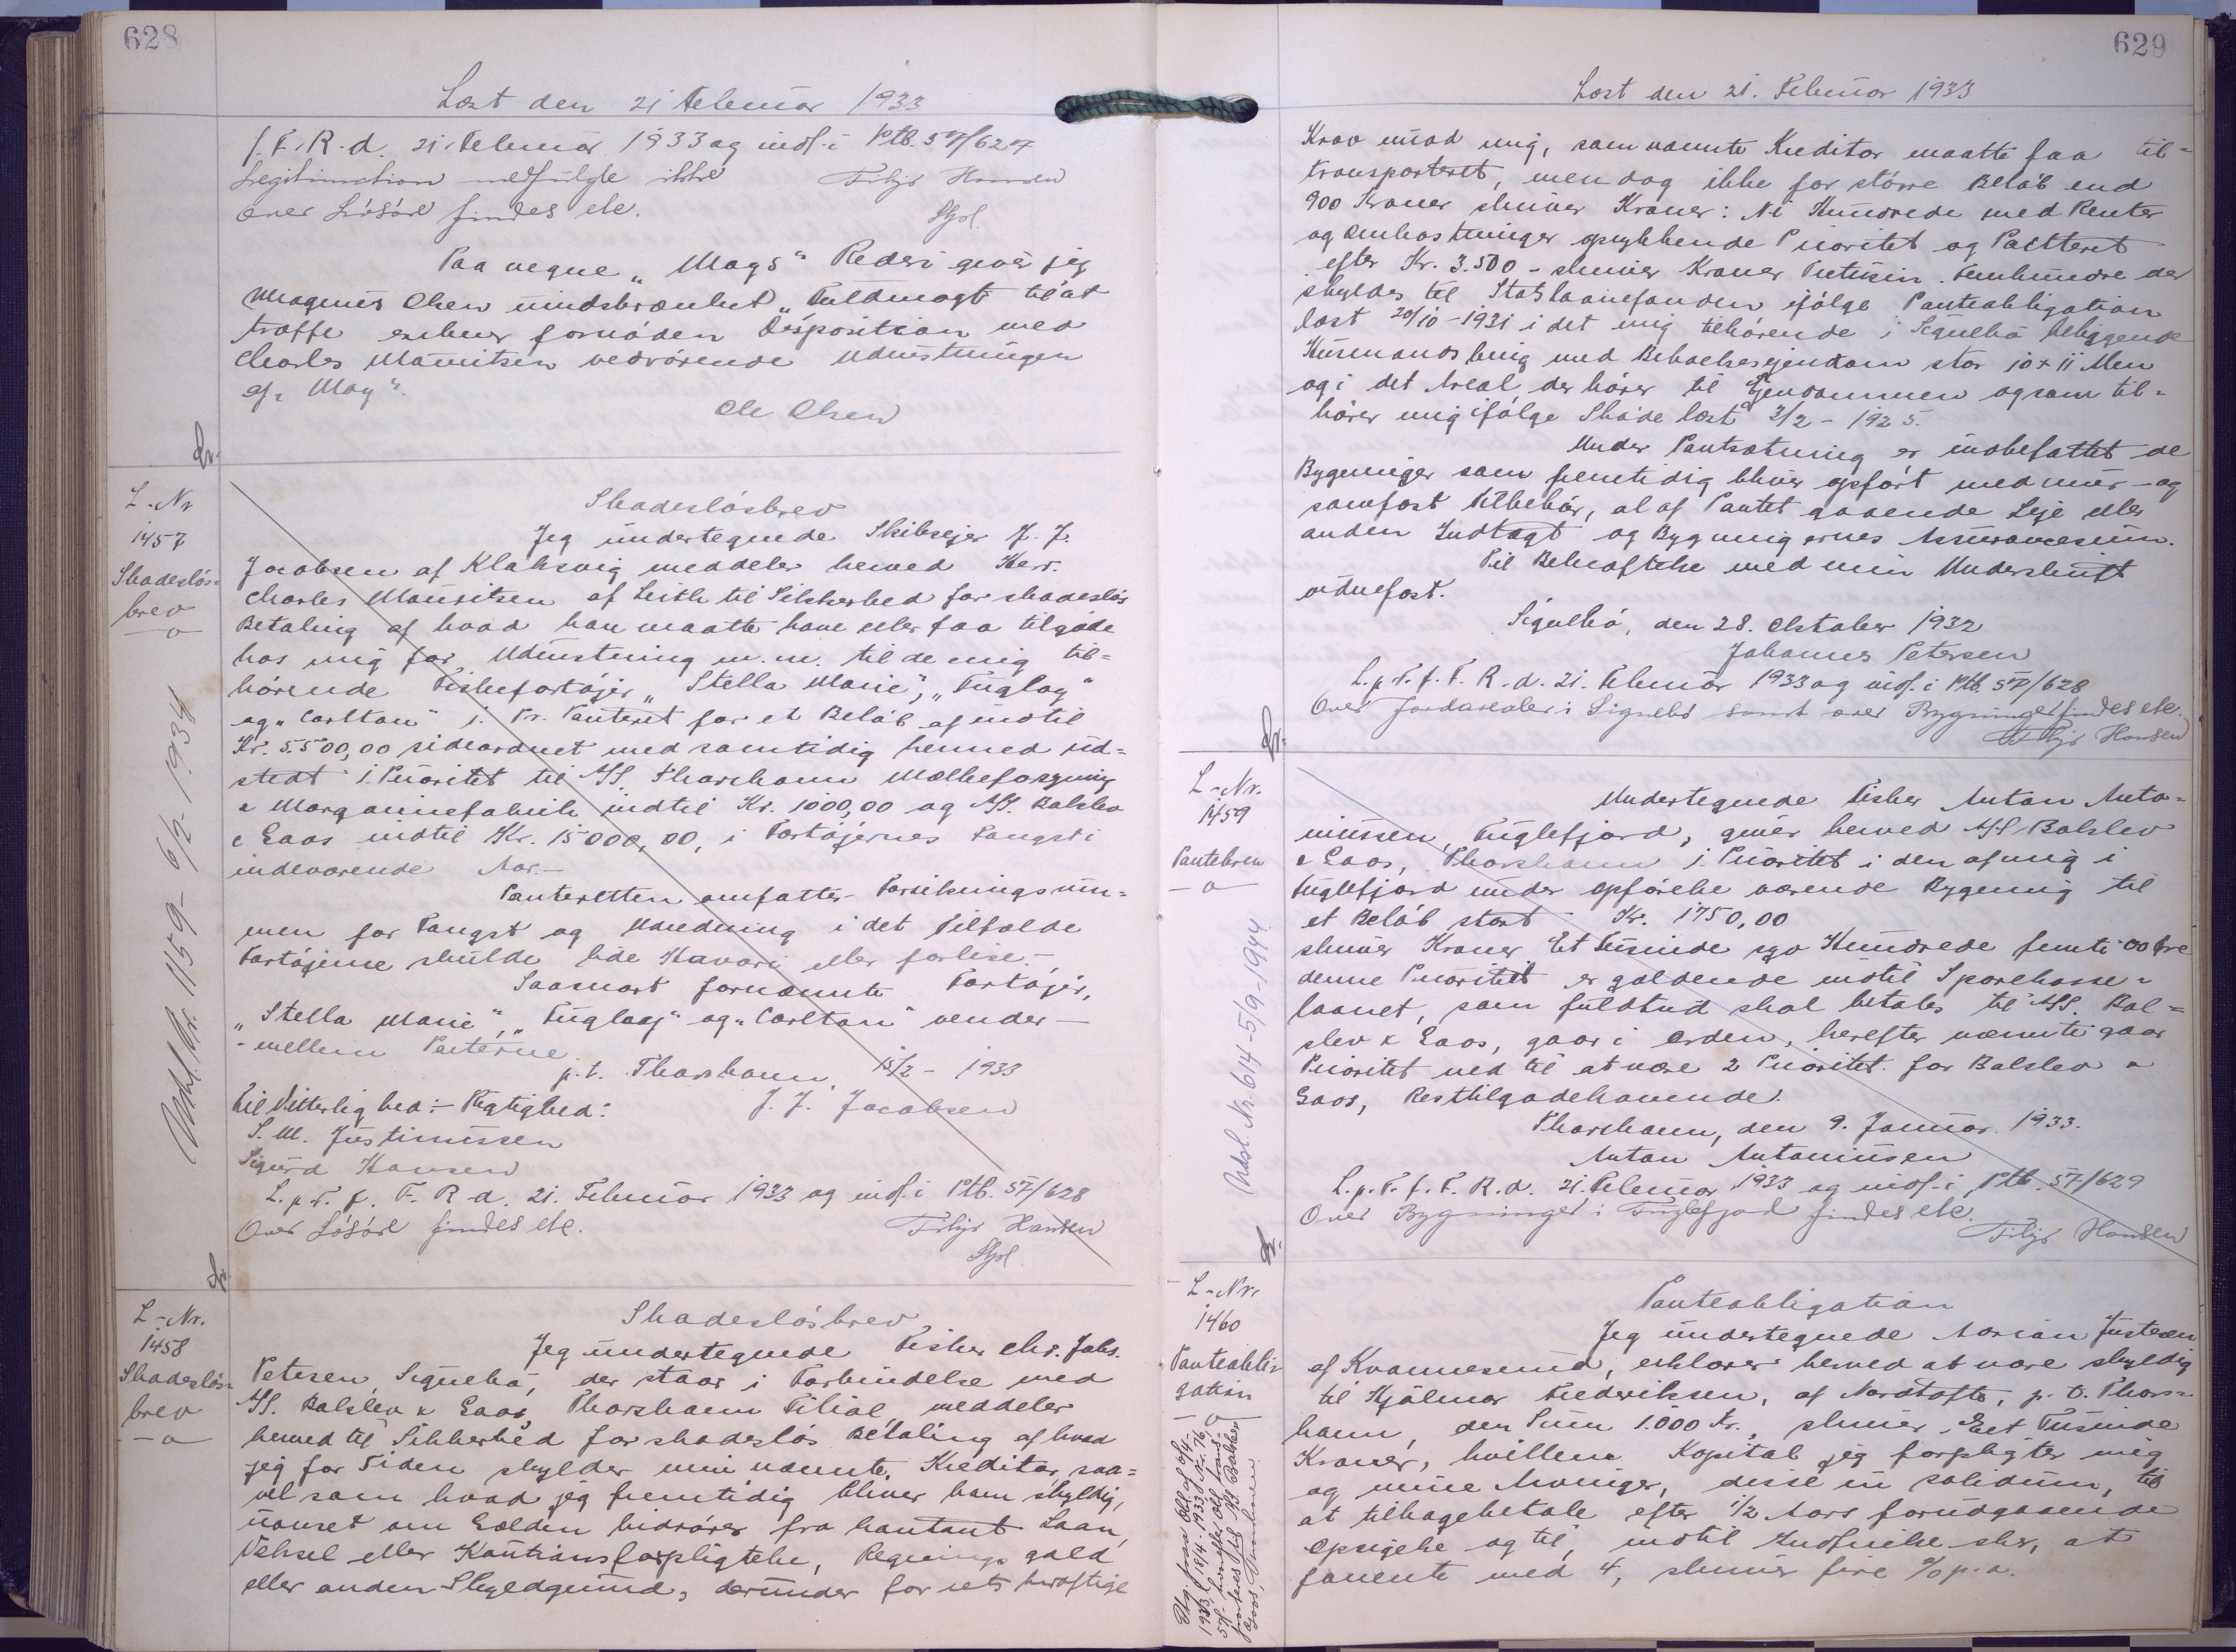 628
Læst den 21 Februar 1933
f. F. R. d. 21. Februar 1933 og indf. i Ptb. 57/627
Legitimation medfulgte ikke Filip Hansen
Over Lösöre findes ele. Sfgl.
Paa vegne "Mags" Rederi giver jeg
Magnus Olsen uindskrænket "Fuldmagt til at
træffe enhver fornöden Disposition med
Charles Mauritsen vedrörende Udrustningen
af "Mag".
Ole Olsen
L.-Nr
1457
Skadeslös=
brev
Udsl. Nr. 1159 - 6/2-1934
Skadeslösbrev
Jeg undertegnede Skibsejer J. J.
Jacobsen af Klaksvig meddeler herved Herr.
Charles Mauritsen af Leith til Sikkerhed for skadeslös
Betaling af hvad han maatte have eller faa tilgode
hos mig for Udrustning m.m. til de mig til=
hörende Fiskefartöjer "Stella Marie", "Fuglöy"
og "Carlton" 1. Pr. Panteret for et Belöb af indtil
Kr. 5500,00 sideordnet med samtidig hermed ud=
stedt 1. Prioritet til A/S. Thorshavn Mælkeforsyning
& Margarinefabrik indtil Kr. 1000,00 og A/S. Balslev
& Gaos indtil Kr. 15000,00, i Fartöjernes Fangst i
indeværende Aar.-
Panteretten omfatter Forsikringssum=
men for Fangst og Udredning i det Tilfælde
Fartöjerne skulde lide Havari eller forlise.-
Saasnart fornævnte Fartöjer,
"Stella Marie", "Fuglöy" og "Carlton" vender -
- mellem Parterne.
p.t. Thorshavn, 15/2 - 1933
Til Vitterlighed: - Rigtighed: J. J. Jacobsen
S. M. Justinussen
Sigurd Hansen
L. p. T. f. F. R. d. 21. Februar 1933 og indf. i Ptb. 57/628
Over Lösöre findes ele. Filip Hansen
Sfgl.
L.-Nr.
1458
Skadeslös=
brev
Skadeslösbrev
Jeg undertegnede Fisker Chr. Johs.
Petersen, Signebö, der staar i Forbindelse med
A/S. Balslev & Gaos, Thorshavn Filial, meddeler
herved til Sikkerhed for skadeslös Betaling af hvad
jeg for Tiden skylder min nævnte Kreditor, saa=
vel som hvad jeg fremtidig bliver ham skyldig,
uanset om Gælden hidrörer fra kontant Laan,
Veksel eller Kautionsforpligtelse, Regnings gæld
eller anden Skyldgrund, derunder for retskraftige
629
Læst den 21. Februar 1933
Krav imod mig, som nævnte Kreditor maatte faa til=
transporteret, men dog ikke for större Belöb end
900 Kroner skriver Kroner: Ni Hundrede med Renter
og Omkostninger oprykkende Prioritet og Panteret
efter Kr. 3.500 - skriver Kroner Tretusin Femhundre der
skyldes til Statslaanefonden ifölge Panteobligation
læst 20/10-1931 i det mig tilhörende i Signebö beliggende
Husmandsbrug med Beboelsesejendom stor 10 x 11 Alen
og i det Areal der hörer til Ejendommen og som til=
hörer mig ifölge Sköde læst 3/2 - 1925.
Under Pantsætning er indbefattet de
Bygninger som fremtidig bliver opfört med mur- og
sömfast Tilbehör, al af Pantet gaaende Leje eller
anden Indtægt og Bygningernes Assurancesum.
Til Bekræftelse med min Underskrift
vidnefast.
Signebö, den 28. Oktober 1932
Johannes Petersen
L. p. T. f. F. R. d. 21. Februar 1933 og indf. i Ptb. 57/628
Over Jordarealer i Signebö samt over Bygninger findes ele.
Filip Hansen
L.-Nr.
1459
Pantebrev
Udsl. Nr. 614-5/9-1944
Undertegnede Fisker Anton Anto=
niussen, Fuglefjord, giver herved A/S Balslev
& Gaos, Thorshavn 1. Prioritet i den af mig i
Fuglefjord under Opförelse værende Bygning til
et Belöb stort Kr. 1750,00
skriver Kroner Et Tusinde syv Hundrede femti 00 Öre
denne Prioritet er gældende indtil Sparekasse=
laanet, som fuldtud skal betales til A/S. Bal=
slev & Gaos, gaar i Orden, herefter nævnte gaar
Prioritet ned til at være 2 Prioritet for Balslev &
Gaos, Resttilgodehavende.
Thorshavn, den 9. Januar 1933.
Anton Antoniussen
L. p. T. f. F. R. d. 21. Februar 1933 og indf. i Ptb. 57/629
Over Bygninger i Fuglefjord findes ele.
Filip Hansen
L.-Nr.
1460
Panteobli=
gation
Panteobligation
Jeg undertegnede Adrian Justesen
af Kvannesund, erklærer herved at være skyldig
til Hjálmar Frederiksen, af Nordtofte, p. t. Thors=
havn, den Sum 1.000 Kr., skriver Eet Tusinde
Kroner, hvilken Kapital jeg forpligter mig
og mine Arvinger, disse in solidum, til
at tilbagebetale efter 1/2 Aars forudgaaende
Opsigelse og til, indtil Indfrielse sker, at
forrente med 4, skriver fire % p. a.